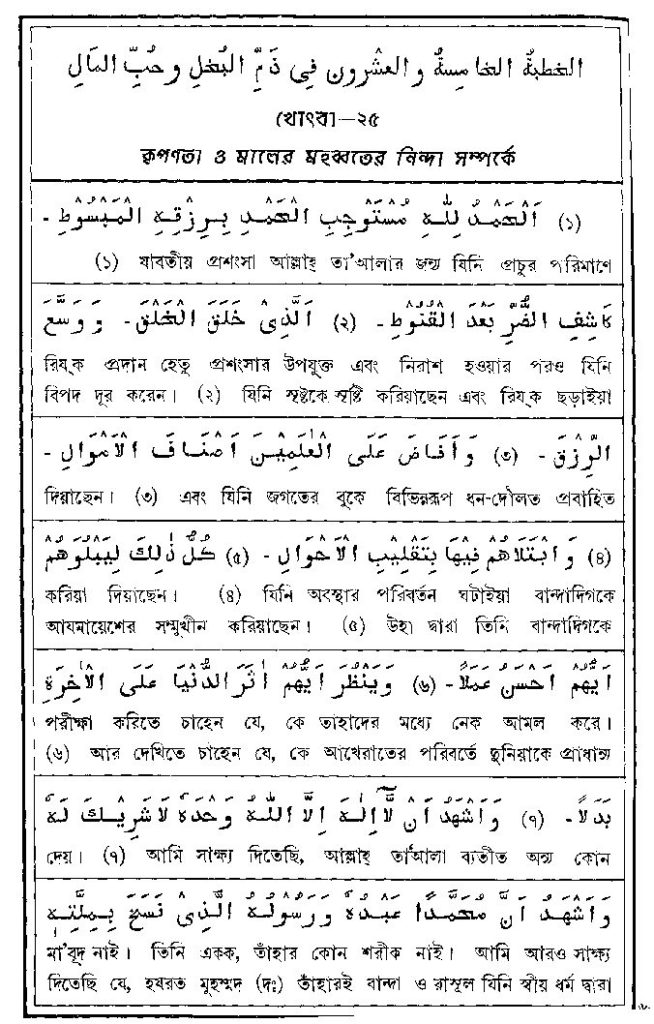 الخطبة الخامسة والعشرون في ذم البخل وحب المال
(খোৎবা)—২৫
কৃপণতা ও মালের মহব্বতের নিন্দা সম্পর্কে
(১) اَلْحَمْدُ لِلّٰهِ مُسْتَوْجِبِ الْحَمْدِ بِرِزْقِهِ الْمَبْسُوْطِ -
(১) যাবতীয় প্রশংসা আল্লাহ্ তা'আলার জন্য যিনি প্রচুর পরিমাণে
كَاشِفِ الضُّرِّ بَعْدَ الْقُنُوْطِ - (২) اَلَّذِىْ خَلَقَ الْخَلْقَ - وَوَسَّعَ
রিয্ক প্রদান হেতু প্রশংসার উপযুক্ত এবং নিরাশ হওয়ার পরও যিনি
বিপদ দূর করেন। (২) যিনি সৃষ্টকে সৃষ্টি করিয়াছেন এবং রিয্ক ছড়াইয়া
الرِّزْقَ - (৩) وَاَفَاضَ عَلَى الْعٰلَمِيْنَ اَصْنَافَ الْاَمْوَالِ -
দিয়াছেন। (৩) এবং যিনি জগতের বুকে বিভিন্নরূপ ধন-দৌলত প্রবাহিত
(৪) وَابْتَلَاهُمْ فِيْهَا بِتَقْلِيْبِ الْاَحْوَالِ - (৫) كُلُّ ذٰلِكَ لِيَبْلُوَهُمْ
করিয়া দিয়াছেন। (৪) যিনি অবস্থার পরিবর্তন ঘটাইয়া বান্দাদিগকে
আযমায়েশের সম্মুখীন করিয়াছেন। (৫) উহা দ্বারা তিনি বান্দাদিগকে
اَيُّهُمْ اَحْسَنُ عَمَلًا - (৬) وَيَنْظُرَ اَيُّهُمْ اٰثَرَ الدُّنْيَا عَلَى الْاٰخِرَةِ
পরীক্ষা করিতে চাহেন যে, কে তাহাদের মধ্যে নেক আমল করে।
(৬) আর দেখিতে চাহেন যে, কে আখেরাতের পরিবর্তে দুনিয়াকে প্রাধান্য
بَدَلًا - (৭) وَاَشْهَدُ اَنْ لَّآ اِلٰهَ اِلَّا اللّٰهُ وَحْدَهٗ لَا شَرِيْكَ لَهٗ
দেয়। (৭) আমি সাক্ষ্য দিতেছি, আল্লাহ্ তা'আলা ব্যতীত অন্য কোন
وَاَشْهَدُ اَنَّ مُحَمَّدًا عَبْدُهٗ وَرَسُوْلُهُ الَّذِىْ نَسَخَ بِمِلَّتِهٖ
মা'বূদ নাই। তিনি একক, তাঁহার কোন শরীক নাই। আমি আরও সাক্ষ্য
দিতেছি যে, হযরত মুহম্মদ (দঃ) তাঁহারই বান্দা ও রাসূল যিনি স্বীয় ধর্ম দ্বারা